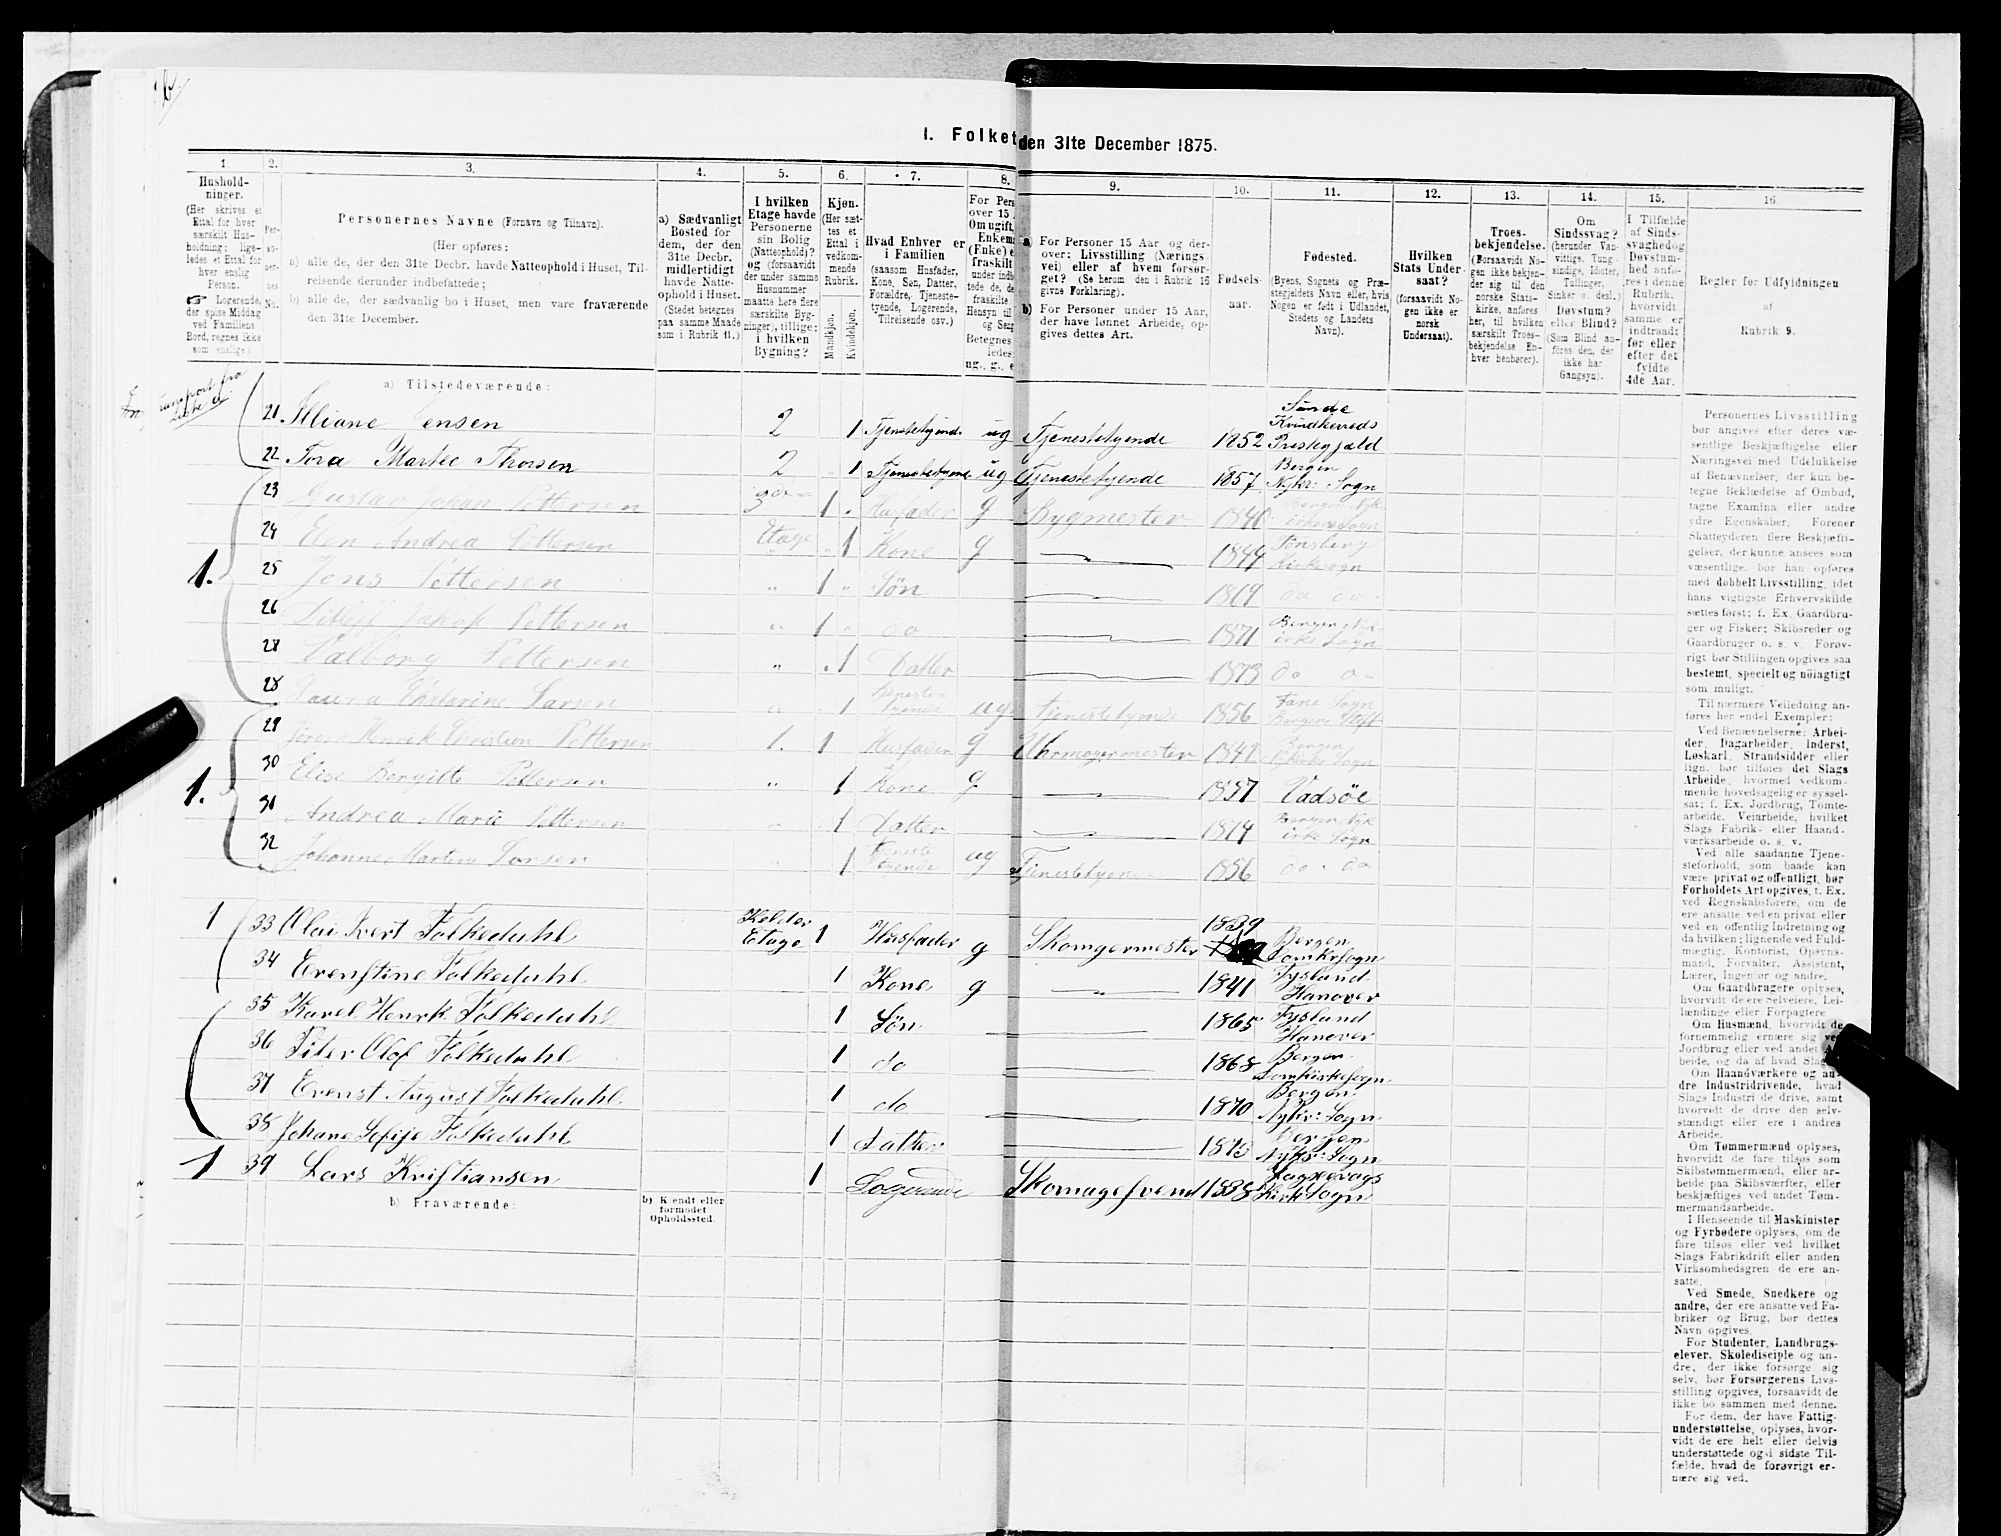 I. Folket den 31te December 1875.
1. 2. 3. 4. 5. 6. 7. 8. 9. 10. 11. 12. 13. 14. 15. 16.
Hushold-
ninger.
(Her skrives et
Ettal for hver
særskilt Hus-
holdning; lige-
ledes et Ettal for
hver enslig
Person.
☞ Logerende,
der spise Middag
ved Familiens
Bord, regnes ikke
som enslige.)
Per-
so-
ner-
nes
No.
Personernes Navne (Fornavn og Tilnavn).
(Her opføres:
a) alle de, der den 31te Decbr. havde Natteophold i Huset, Til-
reisende derunder indbefattede;
b) alle de, der sædvanlig bo i Huset, men vare fraværende
den 31te December.
a) Sædvanligt
Bosted for
dem, der den
31te Decbr.
midlertidigt
havde Natte-
ophold i Huset.
(Stedet betegnes
paa samme Maade
som i Rubrik 11.)
I hvilken
Etage havde
Personerne
sin Bolig
(Natteophold)?
og (forsaavidt
der under samme
Husnummer
maatte høre flere
særskilte Byg-
ninger), tillige:
i hvilken
Bygning?
Kjøn.
(Her sæt-
tes et
Ettal i
vedkom-
mende
Rubrik.
Mandkjøn.
Kvindekjøn.
Hvad Enhver er
i Familien
(saasom Husfader,
Kone, Søn, Datter,
Forældre, Tjeneste-
tyende, Logerende,
Tilreisende osv.)
For Pers
over 15
Om ugift,
Enkem
(Enke) e
fraskilt
a) For Personer 15 Aar og der-
over: Livsstilling (Nærings-
vei) eller af hvem forsør-
get? (Se herom den i Rubrik 16
givne Forklaring).
b) For Personer under 15 Aar,
der have lønnet Arbeide, op-
gives dettes Art.
Fødsels-
aar.
Fødested.
(Byens, Sognets og Præ-
stegjeldets Navn eller, hvis
Nogen er født i Udlandet,
Stedets og Landets
Navn).
Hvilken
Stats Under-
saat?
(forsaavidt No-
gen ikke er
norsk
Undersaat).
Troes-
bekjendelse.
(Forsaavidt No-
gen ikke bekjen-
der sig til den
norske Stats-
kirke, anføres
her, til hvilken
særskilt Troes-
bekjendelse En-
hver henhører).
Om
Sindssvag?
(herunder Van-
vittige, Tung-
sindige, Idioter,
Tullinger,
Sinker o. desl.)
Døvstum?
eller Blind?
(Som Blind an-
føres den, der
ikke har
Gangsyn).
I Tilfælde
af Sinds-
svaghed og
Døvstum-
hed anfø-
res i denne
Rubrik,
hvorvidt
samme er
indtraadt
før eller
efter det
fyldte
4de Aar.
Regler for Udfyldningen
af
Rubrik 9.
a) Tilstedeværende:
21 Jensen 2 1 ug Tjenestetyende 1852 Sunde Kvindherreds Prestegjæld
22 Tora Martie Thorsen 2 1 Tjenestetyende ug Tjenestetyende 1857 Bergen Nykr: Sogn
23 Gustav Johan Pettersen 3 1 Husfader g Bygmester 1840
24 Andrea Pettersen Etage 1 Kone g 1844 Tønsberg Kirkesogn
1. 25 Jens Pettersen 1 Søn 1869 do do
26 Pettersen 1 do 1871
28 Valborg Pettersen 1 Datter 1873 do
28 Laura Larsen 1 Tjeneste-tyende ug Tjenestetyende 1856 Fane Sogn
29 Henrik Christian Pettersen 1. 1 Husfader g Uhrmagermester 1842 Bergen
30 Elise Bergitte Pettersen 1 Kone g 1857 Vadsöe
1. 31 Andrea Marie Pettersen 1 Datter 1874 Bergen Nykirke Sogn
32 Johanne Larsen 1 Tjenestetyende ug Tjenestetyende 1856 do do
1 33 Olai Ivert Folkedahl Kelder Etage 1 Husfader g Skomgermester 1839 Bergen Domkirsogn
34 Erenstine Folkedahl 1 Kone g 1841 Tysland Hanover
35 Karel Henrk Folkedahl 1 Søn 1865 Tysland Hanover
36 Piter Olof Folkedahl 1 do 1868 Bergen Domkirkesogn
37 Erenst August Folkedahl 1 do 1870 Bergen Nykir: Sogn
38 Johane Sofije Folkedahl 1 Datter 1873 Bergen Nykr: Sogn
1 39 Lars Kristiansen 1 Logerende Skomagesvend 1838 Kirk Sogn
b) Fraværende:
b) Kendt eller
formodet
Opholdssted.
Personernes Livsstilling
bør angives efter deres væ-
sentlige Beskjæftigelse eller
Næringsvei med Udelukkelse
af Benævnelser, der kun be-
tegne Beklædelse af Ombud,
tagne Examina eller andre
ydre Egenskaber. Forener
Skatteyderen flere Beskjæfti-
gelser, der kunne ansees som
væsentlige, bør han opføres
med dobbelt Livsstilling, idet
hans vigtigste Erhvervskilde
sættes først; f. Ex. Gaardbru-
ger og Fisker; Skibsreder og
Gaardbruger o. s. v. Forøv-
rigt bør Stillingen opgives saa
bestemt, specielt og nøiagtigt
som muligt.
Til nærmere Veiledning an-
føres her endel Exempler:
Ved Benævnelserne: Arbei-
der, Dagarbeider, Inderst,
Løskarl, Strandsidder eller
lign. bør tilføies det Slags
Arbeide, hvormed vedkom-
mende hovedsagelig er syssel-
sat; f. Ex. Jordbrug, Tomte-
arbeide, Veiarbeide, hvilket
Slags Fabrik- eller Haand-
værksarbeide o. s. v.
Ved alle saadanne Tjene-
steforhold, som baade kan
være privat og offentligt, bør
Forholdets Art opgives, t. Ex.
ved Regnskabsførere, om de
ere ansatte ved en privat eller
ved en offentlig Indretning og
da hvilken; lignende ved Fuld-
mægtig, Kontorist, Opsyns-
mand, Forvalter, Assistent,
Lærer, Ingeniør og andre.
Om Gaardbrugere oplyses,
hvorvidt de ere Selveiere, Lei-
lændinge eller Forpagtere
Om Husmænd, hvorvidt de
fornemmelig ernære sig ved
Jordbrug eller ved andet Ar-
beide, og da af hvad Slags.
Om Haandværkere og an-
dre Industridrivende, hvad
Slags Industri de drive, samt
hvorvidt de drive den selv-
stændigt eller ere i andres
Arbeide.
Om Tømmermænd oplyses,
hvorvidt de fare tilsøs som
Skibstømmermænd, eller ar-
beide paa Skibsværfter, eller
beskjæftiges ved andet Tøm-
mermandsarbeide.
I Henseende til Maskinister
og Fyrbødere oplyses, om de
fare tilsøs eller ved hvilket
Slags Fabrikdrift eller anden
Virksomhedsgren de ere an-
satte.
Ved Smede, Snedkere og
andre, der ere ansatte ved Fa-
briker og Brug, bør dettes
Navn opgives.
For Studenter, Landbrugs-
elever, Skoledisciple og an-
dre, der ikke forsørge sig
selv, bør Forsørgerens Livs-
stilling opgives, forsaavidt de
ikke bo sammen med denne.
For dem, der have Fattig-
understøttelse, oplyses, hvor-
vidt de ere helt eller delvis
understøttede og i sidste Til-
fælde, hvad de forøvrigt er-
nære sig ved.